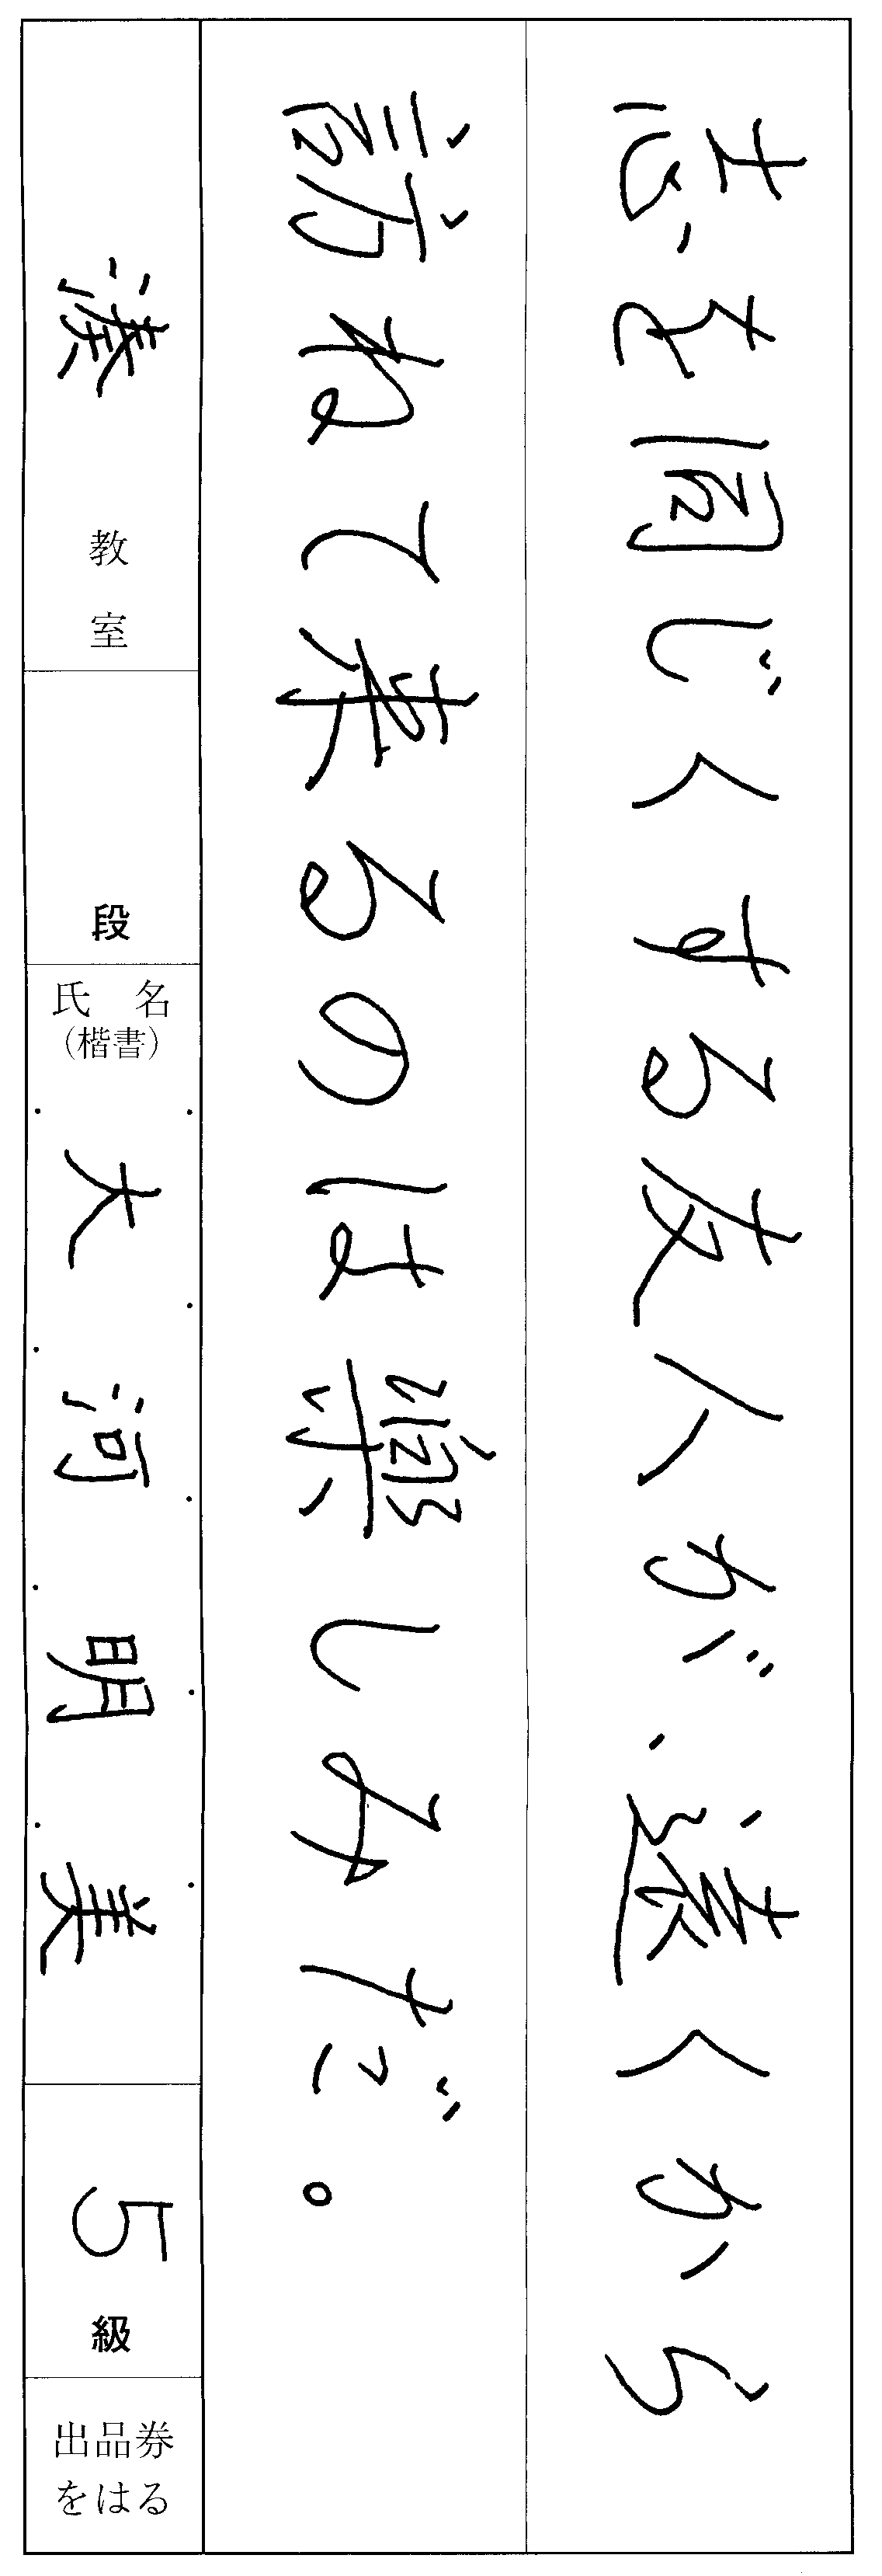 志を同じくする友人が、遠くから
訪ねて来るのは楽しみだ。
湊 教室
段
氏名
(楷書)
大河明美
5級
出品券
をはる